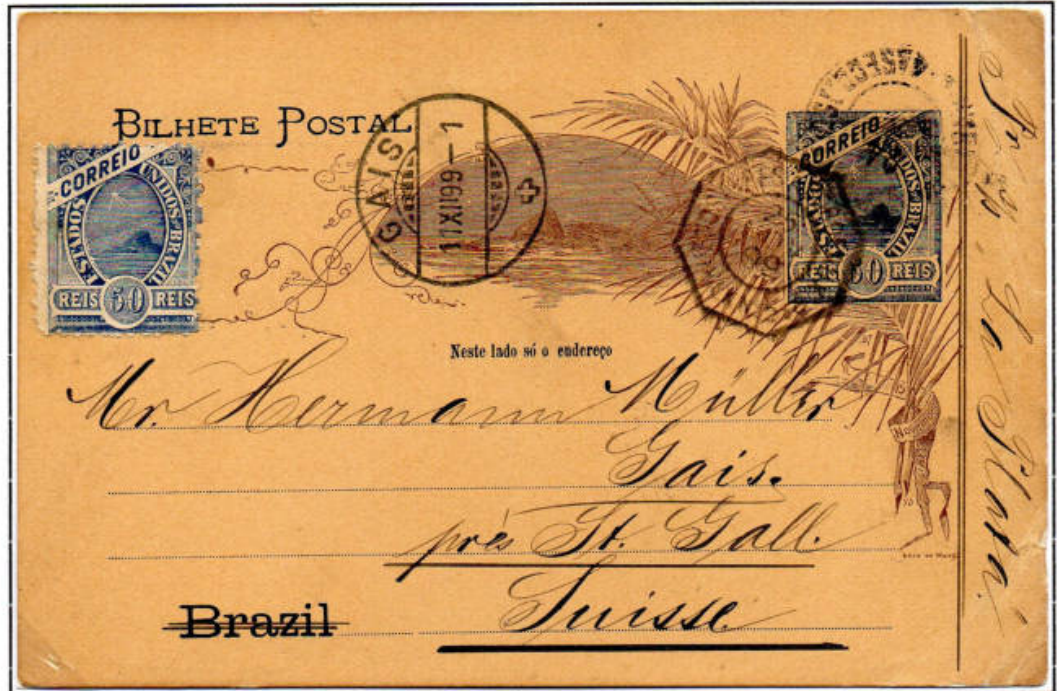 BILHETE POSTAL
CORREIO
ESTADOS UNIDOS BRAZIL
REIS 50 REIS
GAIS
17 XII 99 - 1
CORREIO
ESTADOS UNIDOS BRAZIL
REIS 50 REIS
Neste lado só o endereço
Mr. Hermann Müller
Gais.
près St. Gall.
Suisse
Brazil
La Plata